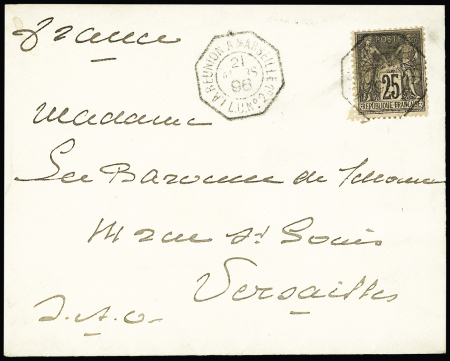 France
LA REUNION A MARSEILLE
21
96
L.U Nº
POSTES
25
REPUBLIQUE FRANÇAISE
Madame
La Baronne de
rue St Louis
Versailles